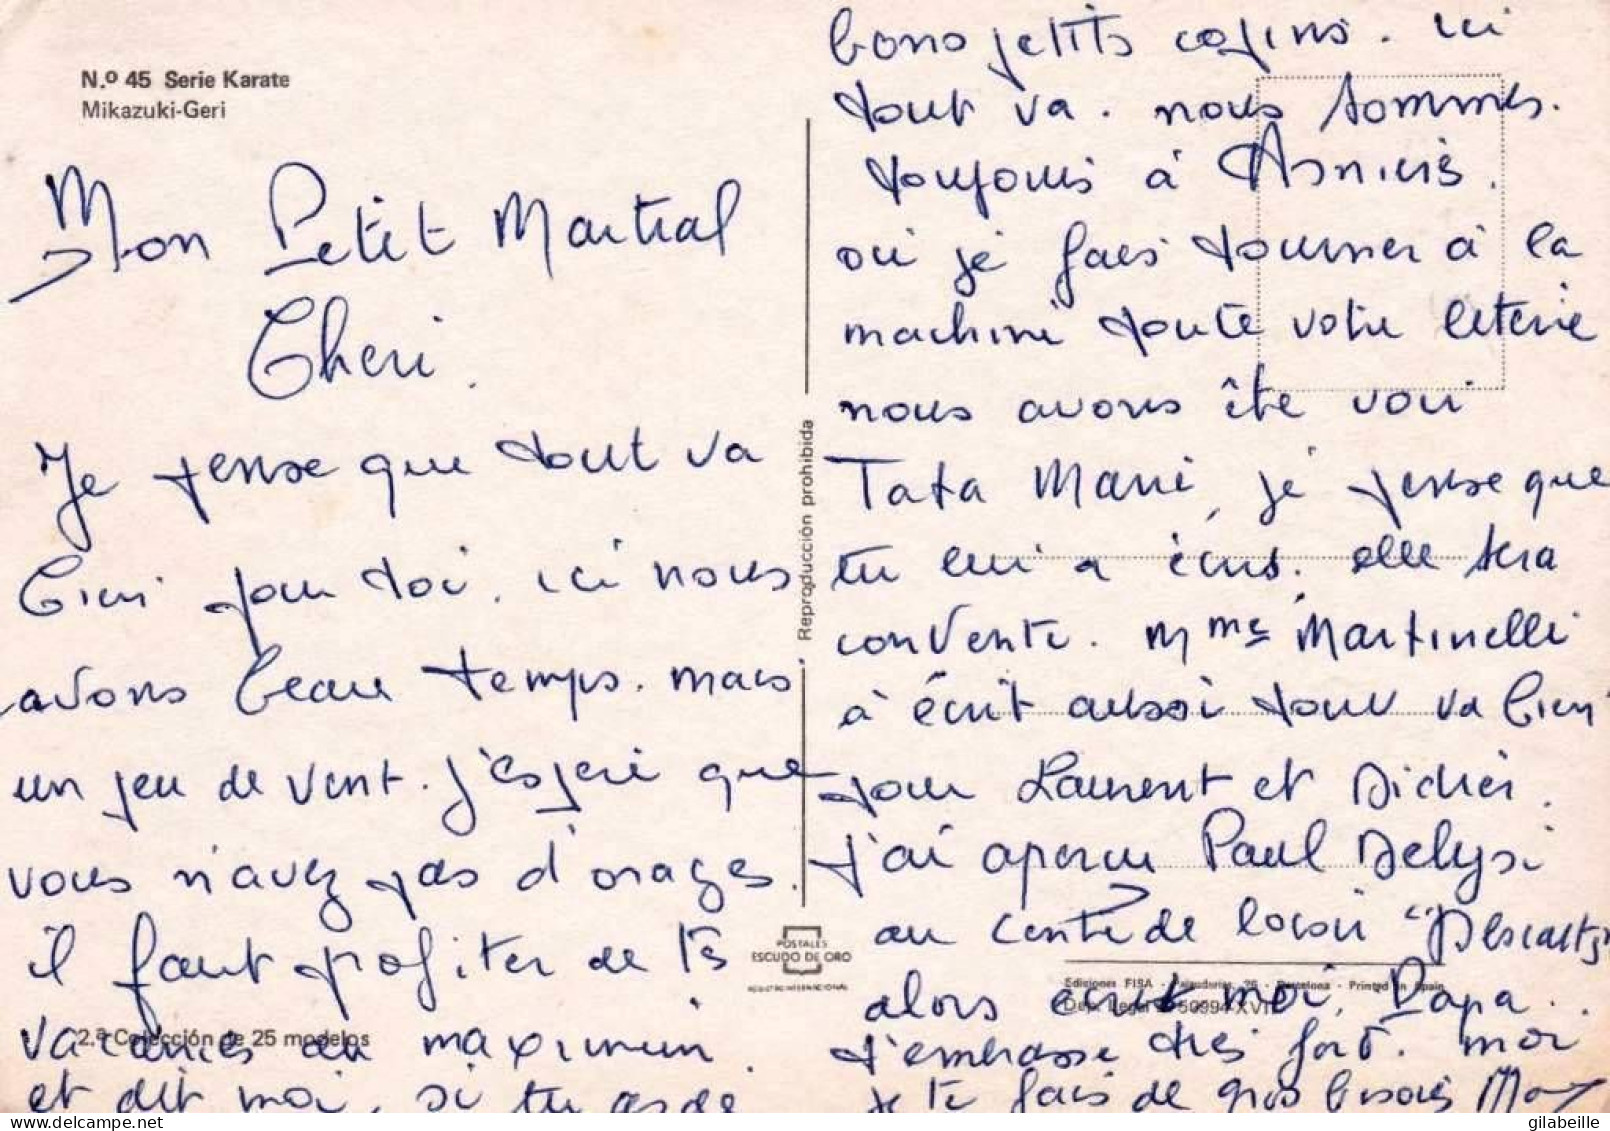 N.º 45 Serie Karate
Mikazuki-Geri
Mon Petit Martial
Cheri.
Je pense que tout va
bien pour toi. ici nous
avons beau temps. mais
un peu de vent. j'espere que
vous n'avez pas d'orages.
il faut profiter de tes
vacances au maximum.
et dit moi, si tu as de
bons petits copins. ici
tout va. nous sommes.
toujours à Asnieres.
ou je fais tourner à la
machine toute votre leterie
nous avons été voir
Tata Marie, je pense que
tu lui a écris. elle sera
contente. Mme Martinelli
à écrit aussi tout va bien
pour Laurent et Didier.
j'ai apercu Paul Delysi
au centre de loisir "Descartes"
alors ecrit moi, Papa.
t'embrasse tres fort. moi
je te fais de gros bisous
Reproducción prohibida
POSTALES
ESCUDO DE ORO
REGISTRO INTERNACIONAL
2.ª Colección de 25 modelos
Ediciones FISA - Palaudarias, 26 - Barcelona - Printed in Spain
Dep. Legal B. 50994-XVII
gilabeille